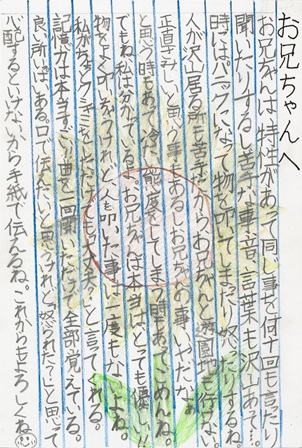 お兄ちゃんへ
お兄ちゃんは特性があって同じ事を何十回も言ったり
聞いたりするし苦手な事、音、言葉も沢山ある。
時にはパニックになって物を叩いてまったり怒ったりする。
人が沢山居る所も苦手だからお兄ちゃんと遊園地も行けない。
正直さみしいと思う事もあるしお兄ちゃんの事いやだなぁ
と思う時もあって冷たい態度をしてしまう時もあってごめんね。
でもね、私は分かっているよ。お兄ちゃんは本当はとっても優しい。
物をよく叩いちゃうけれど人を叩いた事は一度もないよね。
私がちょっとクシャミをしただけでも「大丈夫?」と言ってくれる。
記憶力は本当すごい。曲を一回聞いただけで全部覚えている。
良い所いっぱいある。口で伝えたいと思うけれど「怒られた?」と思って
心配するといけないから手紙で伝えるね。これからもよろしくね。